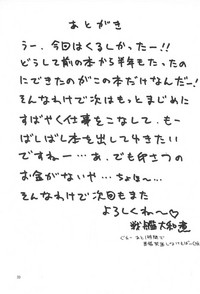 あとがき
うー、今回はくるしかったー!!
どうして前の本から半年もたったの
にできたのがこの本だけなんだー!
そんなわけで次はもっとまじめに
すばやく仕事をこなして、も一
ばしばし本を出して行きたい
ですねー…あ、でも印さつの
お金がないや…ちょほ〜…
そんなわけで次回もまた
よろしくね〜♡
戦艦大和